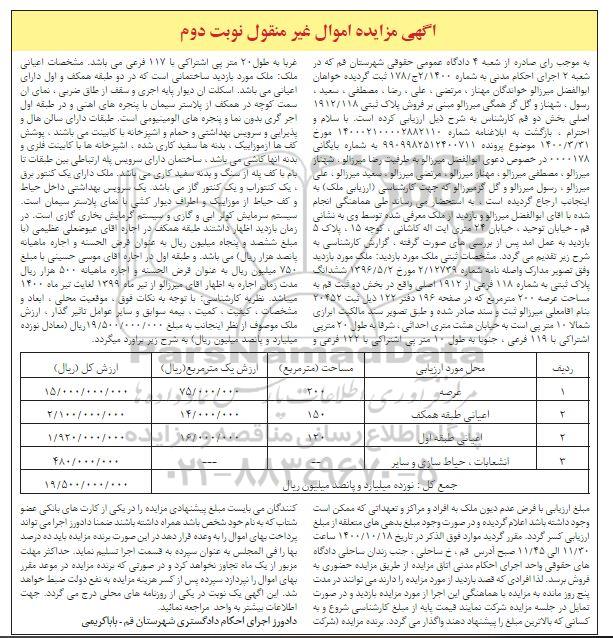 آگهی مزایده اموال غیر منقول نوبت دوم
به موجب رای صادره از شعبه ۴ دادگاه عمومی حقوقی شهرستان قم که در
شعبه ۲ اجرای احکام مدنی به شماره ۲/۱۴۰۰ج/۱۷۸ ثبت گردیده خواهان
ابوالفضل میرزالو خواندگان مهناز ، مرتضی ، علی ، رضا ، مصطفی ، سعید ،
رسول ، شهناز و گل گز همگی میرزالو مبنی بر فروش پلاک ثبتی ۱۹۱۲/۱۱۸
اصلی بخش دو قم کارشناس به شرح ذیل ارزیابی کرده است. با سلام و
احترام ، بازگشت به ابلاغنامه شماره ۱۴۰۰۰۲۱۰۰۰۰۲۸۸۲۱۱۰ مورخ
۱۴۰۰/۳/۳۱ موضوع پرونده ۹۹۰۹۹۸۲۵۱۲۴۰۰۷۱۱ به شماره بایگانی
۰۰۰۰۱۷۸ در خصوص دعوی ابوالفضل میرزالو به طرفیت رضا میرزالو ، شهناز
میرزالو ، مصطفی میرزالو ، مهناز میرزالو ، مرتضی میرزالو ، سعید میرزالو ، علی
میرزالو ، رسول میرزالو و گل گزمیرزالو که جهت کارشناسی (ارزیابی ملک) به
اینجانب ارجاع گردیده است . به استحضار می رساند طی هماهنگی انجام
شده با آقای ابوالفضل میرزالو و بازدید از ملک معرفی شده توسط وی به نشانی
قم - خیابان توحید ، خیابان ۲۴ متری آیت اله کاشانی ، کوچه ۱۵ ، پلاک ۵
بازدید به عمل آمد پس از بررسی های صورت گرفته ، گزارش کارشناسی به
شرح زیر تقدیم می گردد. مشخصات ثبتی ملک مورد بازدید: ملک مورد بازدید
وفق تصویر مدارک واصله نامه شماره ۲/۱۲۷۳۹ مورخ ۱۳۹۶/۵/۲ ششدانگ
پلاک ثبتی به شماره ۱۱۸ فرعی از ۱۹۱۲ اصلی واقع در بخش دو ثبت قم به
مساحت عرصه ۲۰۰ مترمربع که در صفحه ۱۹۶ دفتر ۱۲۲ ذیل ثبت ۲۰۴۵۲
بنام آقامعلی میرزالو ثبت و سند صادر شده و طبق تصویر سند مالکیت ابرازی
شمالا ۱۰ متر پی است به خیابان هشت متری احداثی ، شرقا به طول ۲۰ مترپی
اشتراکی با ۱۱۹ فرعی ، جنوبا به طول ۱۰ متر پی اشتراکی با ۱۲۲ فرعی و
غربا به طول۲۰ متر پی اشتراکی با ۱۱۷ فرعی می باشد. مشخصات اعیانی
ملک: ملک مورد بازدید ساختمانی است که در دو طبقه همکف و اول دارای
اعیانی می باشد. اسکلت آن دیوار پایه آجری و سقف از طاق ضربی ، نمای آن
سمت کوچه در همکف از پلاستر سیمان با پنجره های آهنی و در طبقه اول
آجر گری بدون نما و پنجره های آلومینیومی است. طبقات دارای سالن هال و
پذیرایی و سرویس بهداشتی و حمام و آشپزخانه با کابینت می باشند ، پوشش
کف ها آزموزاییک ، بدنه ها سفید کاری شده ، آشپزخانه ها با کابینت فلزی و
بدنه آنها کاشی می باشد ، ساختمان دارای سرویس پله ارتباطی بین طبقات تا
بام با کف پله از سنگ و بدنه سفید کاری می باشد. ملک دارای یک کنتور برق
، یک کنتورآب و یک کنتور گاز می باشد. یک سرویس بهداشتی داخل حیاط
و کف حیاط از موزاییک و اطراف دیوار کشی با نمای پلاستر سیمان است.
سیستم سرمایش کولر آبی و گازی و سیستم گرمایش بخاری گازی است. در
زمان بازدید اظهار داشتند طبقه همکف در اجاره آقای عیوضعلی عظیمی (با
مبلغ ششصد و پنجاه میلیون ریال به عنوان قرض الحسنه و اجاره ماهیانه
پانصد هزار ریال) می باشد. و طبقه اول در اجاره آقای موسی حسینی با مبلغ
۷۵۰ میلیون ریال به عنوان قرض الحسنه و اجاره ماهیانه ۵۰۰ هزار ریال
مدت زمان اجاره به اظهار آقای میرزالو از تیر ماه ۱۳۹۹ لغایت تیر ماه ۱۴۰۰
میباشد. نظریه کارشناسی: با توجه به نکات فوق ، موقعیت محلی ، ابعاد و
مشخصات ، کیفیت ، کمیت ، بیمه سوابق و سایر عوامل تاثیر گذار ، ارزش
ملک موصوف از نظر اینجانب به مبلغ ۱۹/۵۰۰/۰۰۰/۰۰۰ ریال (معادل نوزده
میلیارد و پانصد میلیون ریال) به شرح زیر برآورد میگردد.
ردیف محل مورد ارزیابی مساحت (مترمربع) ارزش یک مترمربع(ریال) ارزش کل (ریال)
۱ عرصه ۲۰۰ ۷۵/۰۰۰/۰۰۰ ۱۵/۰۰۰/۰۰۰/۰۰۰
۲ اعیانی طبقه همکف ۱۵۰ ۱۴/۰۰۰/۰۰۰ ۲/۱۰۰/۰۰۰/۰۰۰
۲ اعیانی طبقه اول ۱۲۰ ۱۶/۰۰۰/۰۰۰ ۱/۹۲۰/۰۰۰/۰۰۰
۳ انشعابات ، حیاط سازی و سایر -- --- ۴۸۰/۰۰۰/۰۰۰
جمع کل : نوزده میلیارد و پانصد میلیون ریال ۱۹/۵۰۰/۰۰۰/۰۰۰
ParsNamadData
پایگاه اطلاع رسانی مناقصه و مزایده
۰۲۱-۸۸۳۴۹۶۷۰-۵
مبلغ ارزیابی با فرض عدم دیون ملک به افراد و مراکز و تعهداتی که ممکن است
وجود داشته باشد اعلام گردیده و در صورت وجود مبلغ بدهی های متعلقه از مبلغ
ارزیابی کسر گردد. مقرر گردید موارد فوق الذکر در تاریخ ۱۴۰۰/۱۰/۱۸ ساعت
۱۱/۳۰ الی ۱۱/۴۵ صبح آدرس قم ، خ ساحلی ، جنب زندان ساحلی دادگاه
های حقوقی واحد اجرای احکام مدنی اتاق مزایده از طریق مزایده حضوری به
فروش برسد. لذا افرادی که قصد بازدید از مورد مزایده را دارند می توانند در مدت
پنج روز مانده به مزایده با هماهنگی این اجرا از مورد مزایده بازدید و در صورت
تمایل در جلسه مزایده شرکت نمایند قیمت پایه از مبلغ کارشناسی شروع و به
کسانی که بالاترین مبلغ را پیشنهاد دهند واگذار می گردد. برنده مزایده (شرکت
کنندگان می بایست مبلغ پیشنهادی مزایده را در یکی از کارت های بانکی عضو
شتاب که به نام خود شخص باشد همراه داشته باشند ضمنا دادورز اجرا می تواند
پرداخت بهای اموال را به وعده قرار دهد در این صورت برنده مزایده باید ده درصد
بها را فی المجلس به عنوان سپرده به قسمت اجرا تسلیم نماید. حداکثر مهلت
مزبور از یک ماه تجاوز نخواهد کرد و در صورتی که برنده مزایده در موعد مقرر
بهای اموال را نپردازد سپرده پس از کسر هزینه مزایده به نفع دولت ضبط خواهد
شد. این آگهی یک نوبت در یکی از روزنامه های محلی درج می گردد. جهت
اطلاعات بیشتر به واحد مراجعه نمائید.
دادورز اجرای احکام دادگستری شهرستان قم - باباکریمی